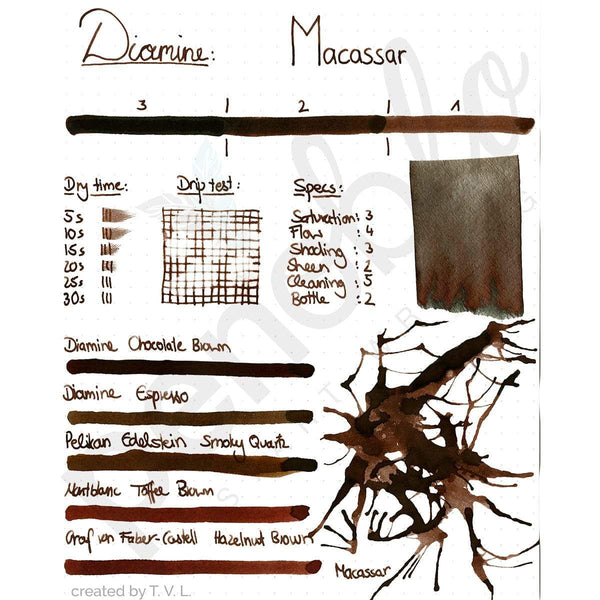 Diamine: Macassar
3 2 1
Dry time: Drip test: Specs:
5s
10s
15s
20s
25s
30s
Saturation: 3
Flow : 4
Shading : 3
Sheen : 2
Cleaning : 5
Bottle : 2
Diamine Chocolate Brown
Diamine Espresso
Pelikan Edelstein Smoky Quartz
Montblanc Toffee Brown
Graf von Faber-Castell Hazelnut Brown
Macassar
created by T. V. L.